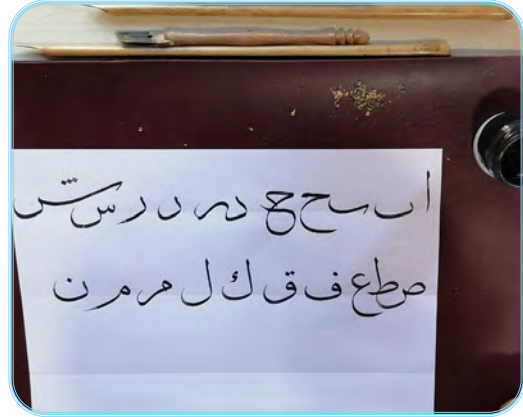 ا ں ح ح د ر د ر س ش
ص ط ع ف ق ك ل م م ن